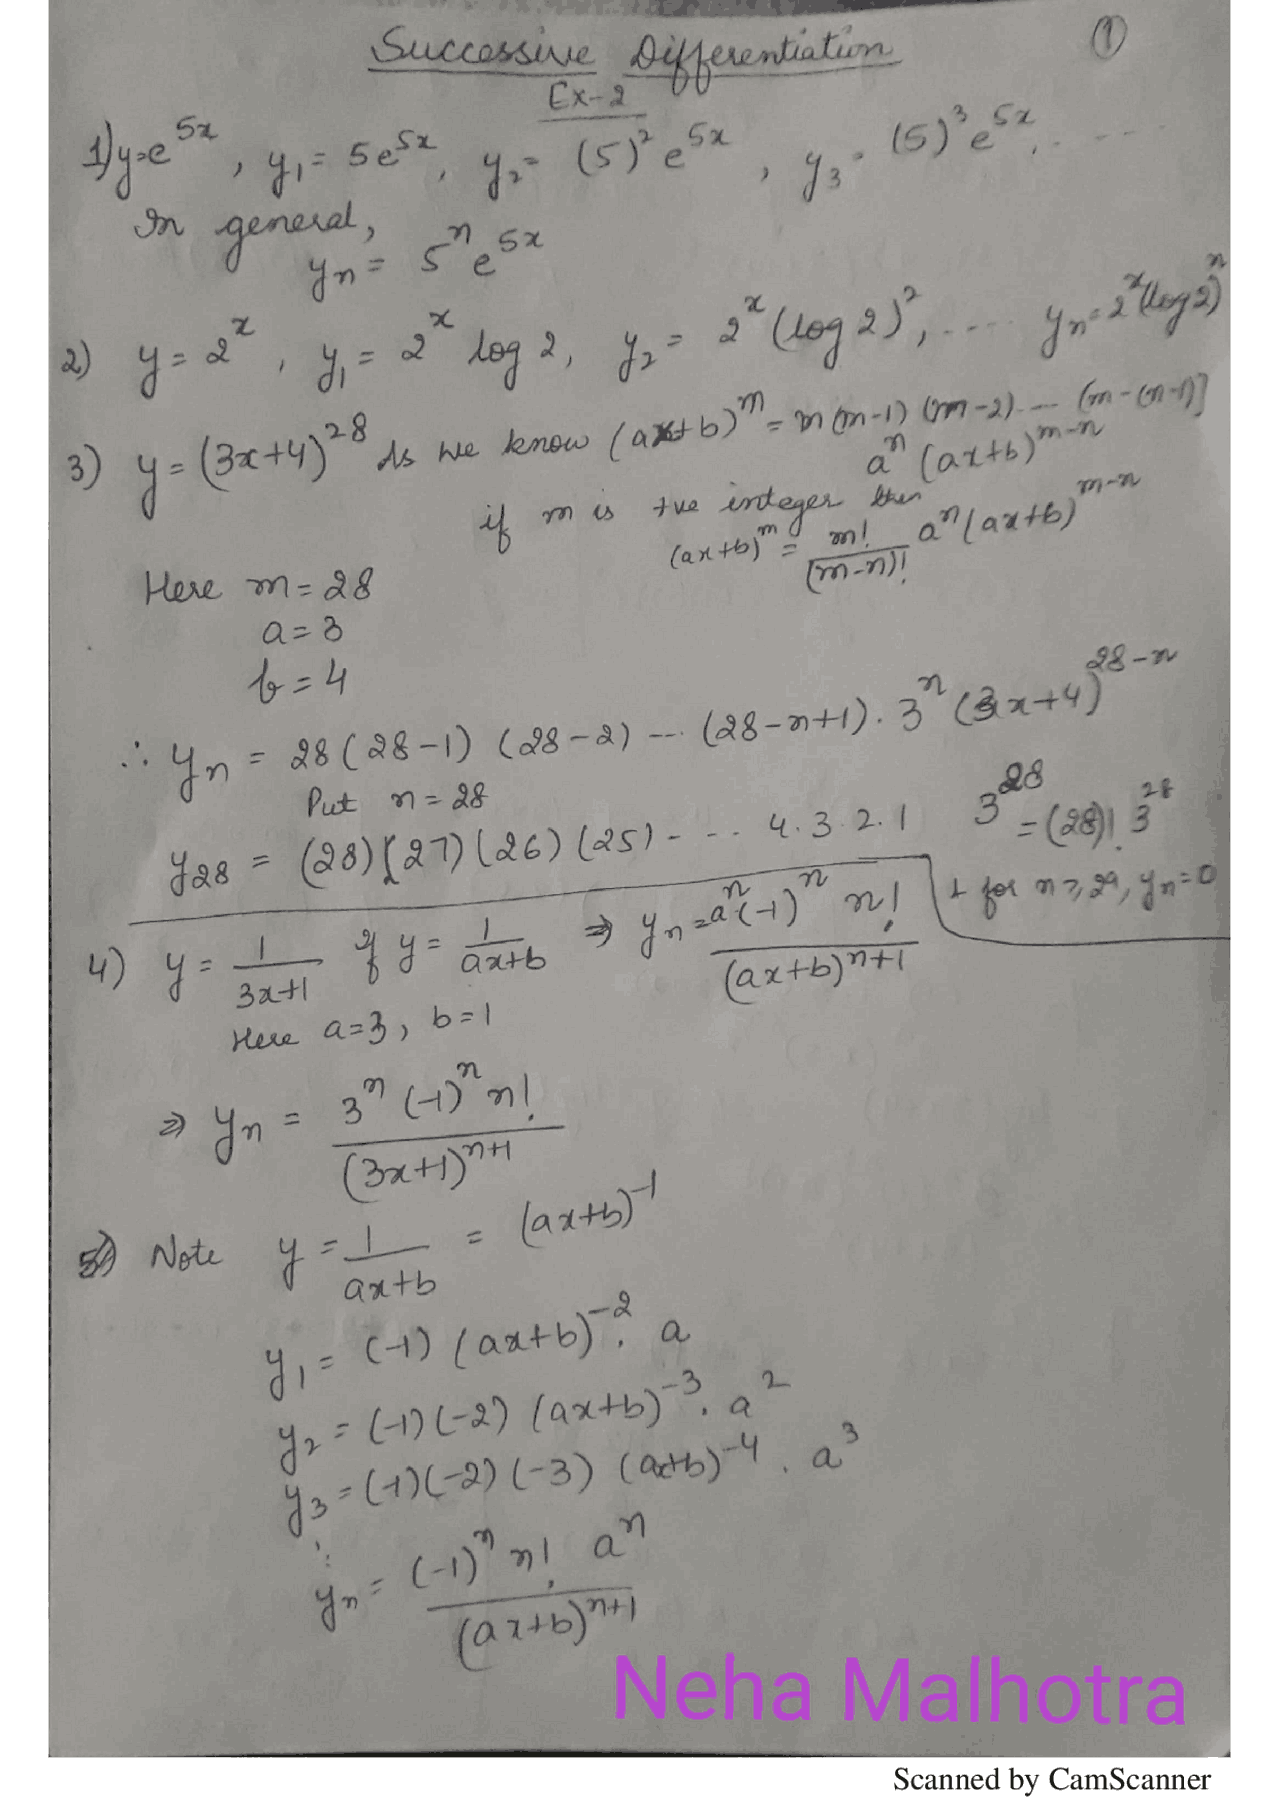 Successive Differentiation ①
Ex-2
1) y=e^5x , y₁ = 5e^5x , y₂ = (5)² e^5x , y₃ = (5)³ e^5x .....
In general,
yₙ = 5ⁿ e^5x
2) y = 2^x , y₁ = 2^x log 2, y₂ = 2^x (log 2)², .... yₙ = 2^x (log 2)ⁿ
3) y = (3x+4)^28 As we know (ax+b)^m = m(m-1) (m-2).... (m-(n-1)]
aⁿ (ax+b)^m-n
if m is +ve integer then
(ax+b)^m = m!/(m-n)! aⁿ (ax+b)^m-n
Here m = 28
a = 3
b = 4
∴ yₙ = 28(28-1) (28-2) .... (28-n+1). 3ⁿ (3x+4)^28-n
Put n = 28
y₂₈ = (28)[27)(26)(25)- ... 4.3.2.1 3^28 = (28)! 3^28
& for n ≥ 29, yₙ = 0
4) y = 1/3x+1 If y = 1/ax+b ⇒ yₙ = aⁿ(-1)ⁿ n!/(ax+b)^n+1
Here a=3, b=1
⇒ yₙ = 3ⁿ (-1)ⁿ n!/(3x+1)^n+1
Note y = 1/ax+b = (ax+b)^-1
y₁ = (-1) (ax+b)^-2 . a
y₂ = (-1)(-2) (ax+b)^-3 . a²
y₃ = (-1)(-2)(-3) (ax+b)^-4 . a³
⋮
yₙ = (-1)ⁿ n! aⁿ/(ax+b)^n+1
Neha Malhotra
Scanned by CamScanner